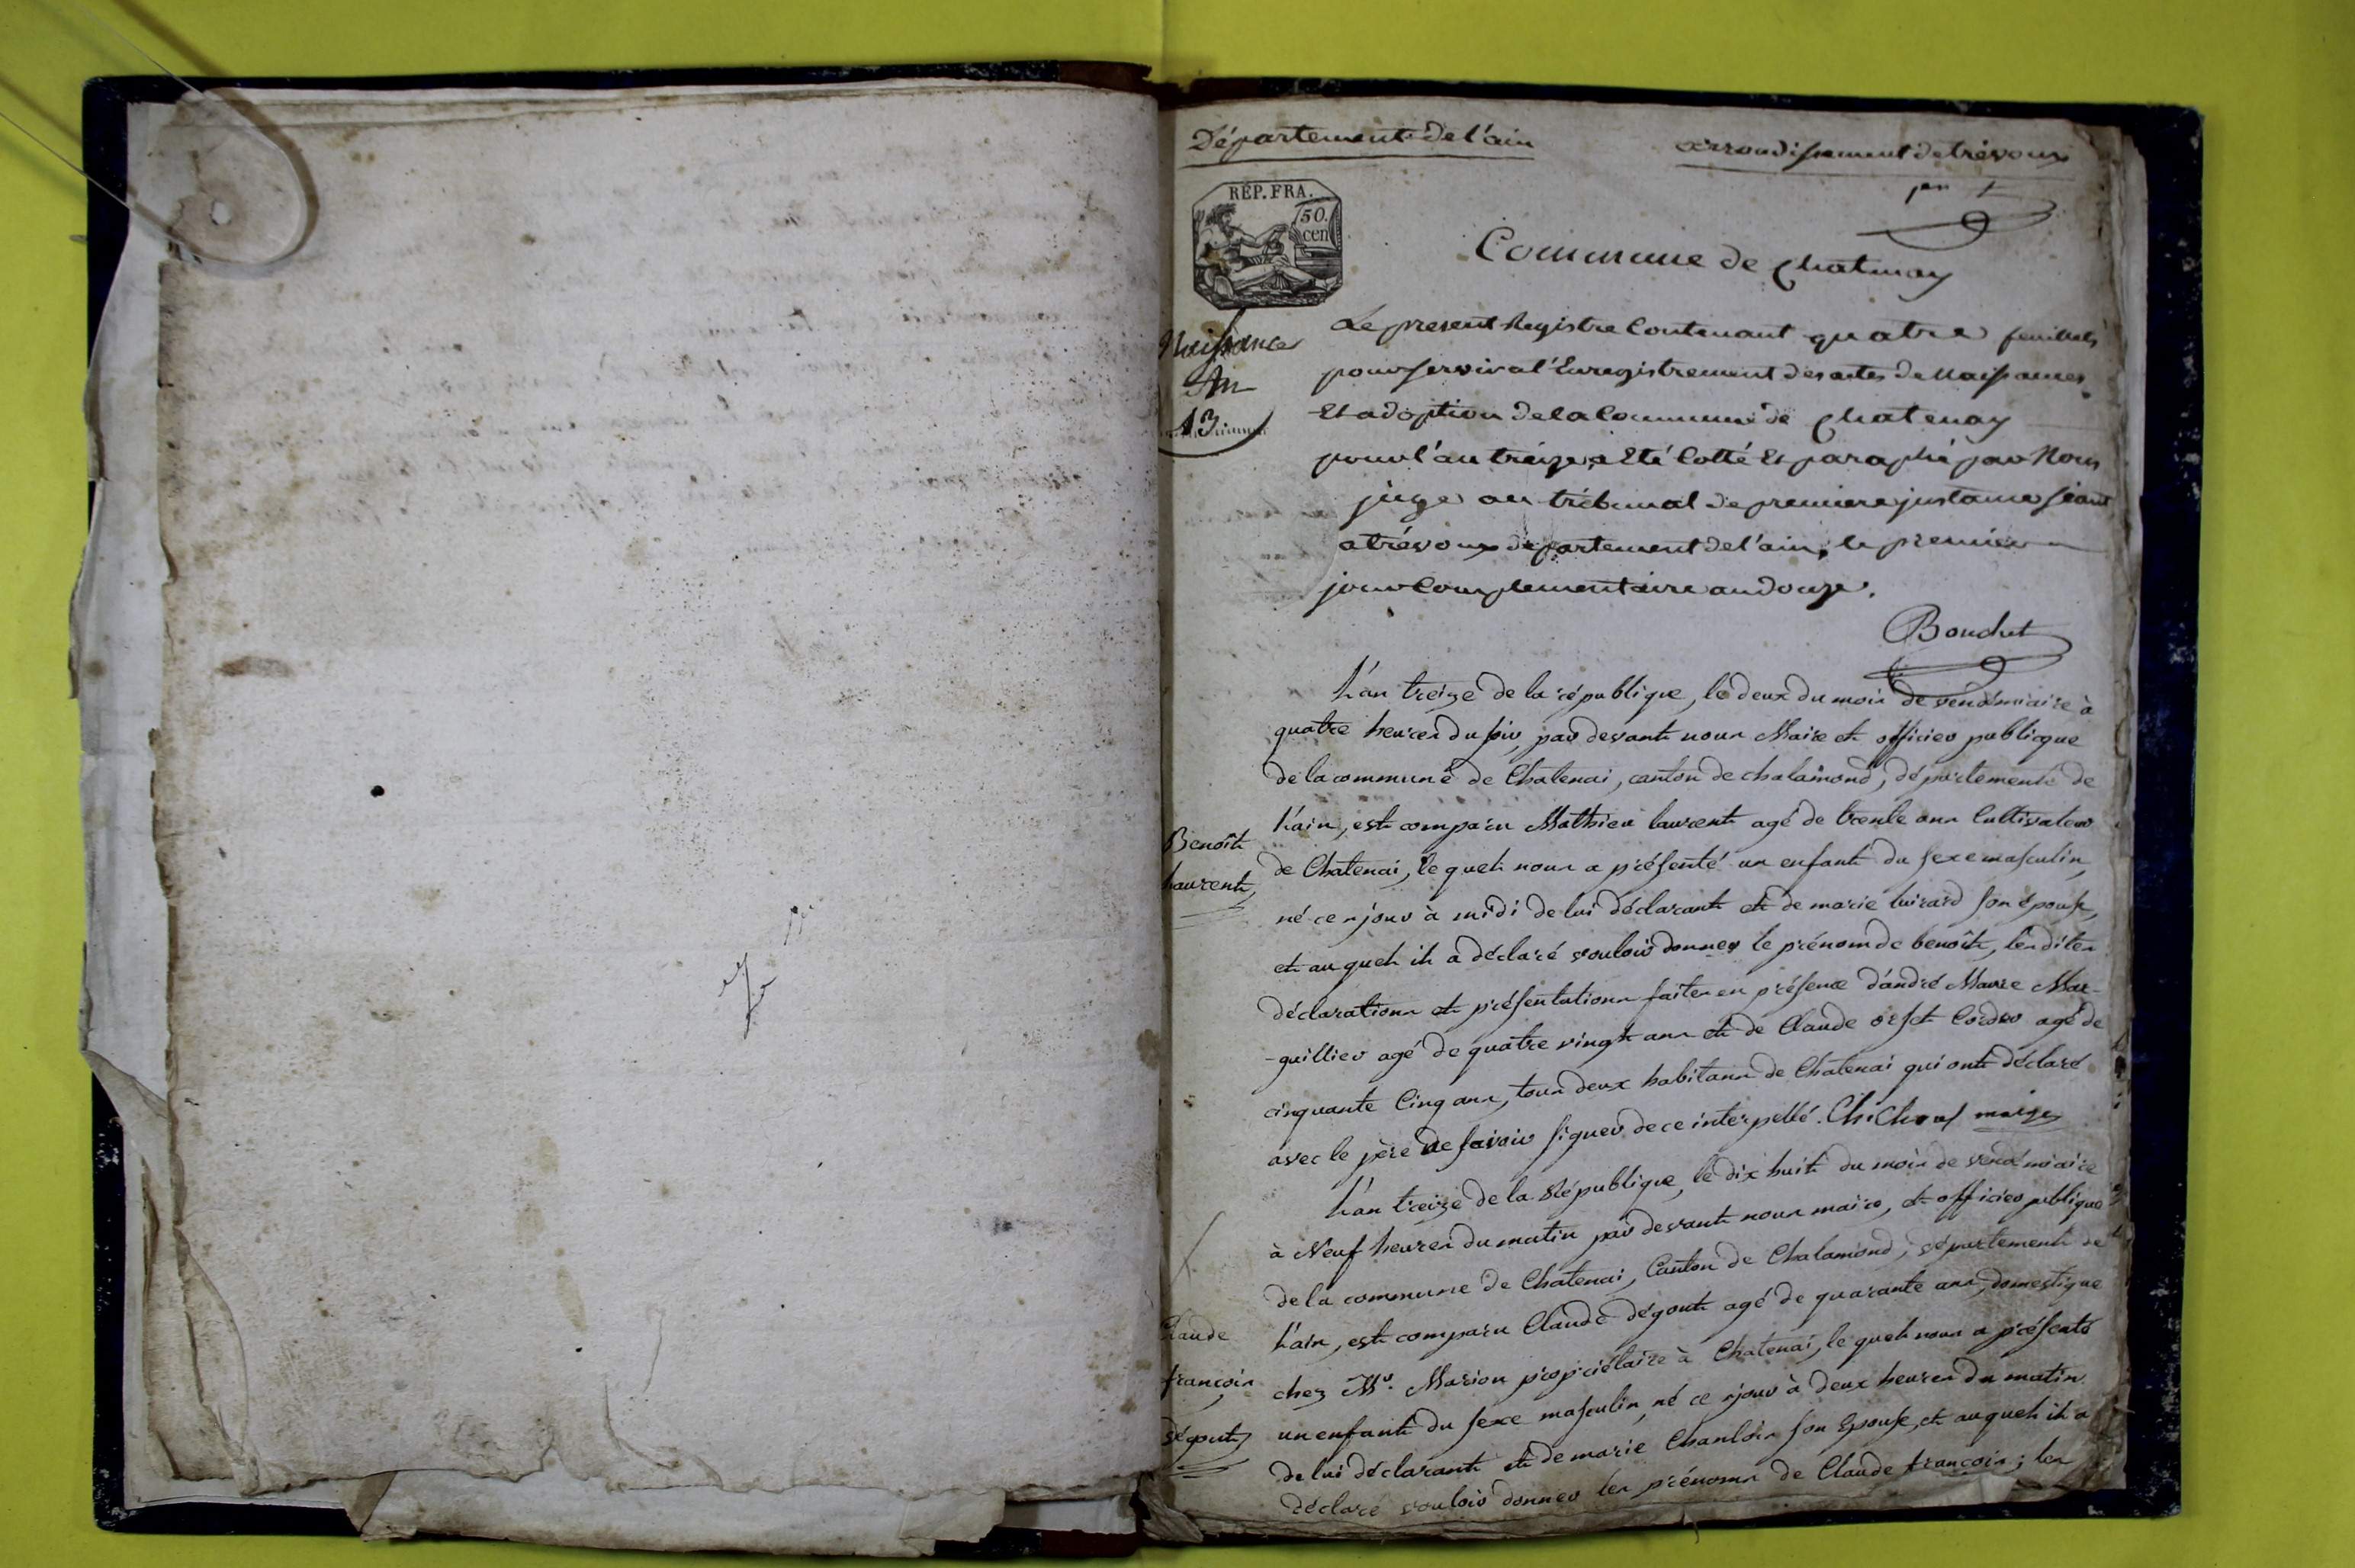 Département de l'ain
arrondissement de trévoux
REP. FRA.
50.
cen
Commune de chatenay
Naissances
An
13
Le present Registre Contenant quatre feuillets
pour servir a l'Enregistrement des actes de Naissances
Et adoption de la Commune de chatenay
pour l'an treize, a Eté Cotté Et paraphé par Nous
juge au tribunal de premiere jnstance séant
a trévoux département de l'ain, le premier
jour Complementaire an douze.
Bouchet
L'an treize de la république, le deux du mois de vendémiaire à
quatre heures du soir, par devant nous Maire et officier publicque
de la commune de Chatenai, canton de chalamond, département de
L'ain, est comparu Mathieu laurent agé de trente ans Cultivateur
de Chatenai, le quel nous a présenté un enfant du sexe masculin,
né ce njour à midi de lui déclarant et de marie luirard son épouse,
et au quel il a déclaré vouloir donner le prénom de benoît, les dites
déclarations et présentations faites en présence d'andré Maure Mar-
-guillier agé de quatre vingt ans et de Claude orset Cordier agé de
cinquante Cinq ans, tous deux habitans de Chatenai qui ont déclaré
avec le père ne savoir signer de ce interpellé. maire
Benoît
Laurent
L'an treize de la République, le dix huit du mois de vendémiaire
à Neuf heures du matin par devant nous maire, et officier publique
de la commune de Chatenai, Canton de Chalamond, département de
L'ain, est comparu Claude dégout agé de quarante ans, domestique
chez Mr. Marion propriétaire à Chatenai, le quel nous a présenté
un enfant du sexe masculin, né ce njour à deux heures du matin
de lui déclarant et de marie son Epouse, et au quel il a
déclaré vouloir donner les prénoms de Claude françois; les
Claude
françois
dégout